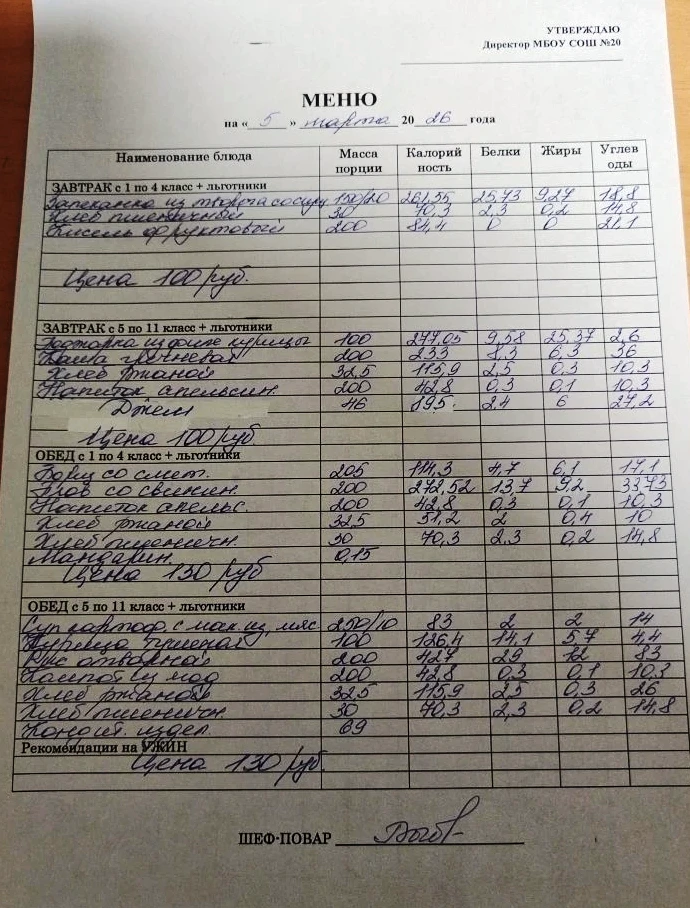 УТВЕРЖДАЮ
Директор МБОУ СОШ №20
МЕНЮ
на « 5 » марта 20 26 года
Наименование блюда Масса порции Калорий ность Белки Жиры Углев оды
ЗАВТРАК с 1 по 4 класс + льготники
Запеканка из творога со сгущ 150/20 261,55 25,73 9,27 18,8
Хлеб пшеничный 30 70,3 2,3 0,2 14,8
Кисель фруктовый 200 84,4 0 0 21,1
Цена 100 руб.
ЗАВТРАК с 5 по 11 класс + льготники
из филе курицы 100 277,05 9,58 25,37 2,6
Каша гречневая 200 233 8,3 6,3 36
Хлеб ржаной 32,5 115,9 2,5 0,3 10,3
Напиток апельсин. 200 42,8 0,3 0,1 10,3
Джем 46 195. 2,4 6 27,2
Цена 100 руб
ОБЕД с 1 по 4 класс + льготники
Борщ со смет. 205 114,3 4,7 6,1 17,1
Плов со свинин. 200 272,52 13,7 9,2 33,73
Напиток апельс. 200 42,8 0,3 0,1 10,3
Хлеб ржаной 32,5 51,2 2 0,4 10
Хлеб пшеничн. 30 70,3 2,3 0,2 14,8
Мандарин. 0,15
Цена 130 руб
ОБЕД с 5 по 11 класс + льготники
Суп картоф. с мак. из, мяс. 250/10 83 2 2 14
Курица тушеная 100 126,4 14,1 5,7 4,4
Рис отварной 200 427 29 12 83
Компот из 200 42,8 0,3 0,1 10,3
Хлеб ржаной 32,5 115,9 2,5 0,3 26
Хлеб пшеничн 30 70,3 2,3 0,2 14,8
Кондит. издел. 69
Рекомендации на УЖИН
Цена 130 руб.
ШЕФ-ПОВАР